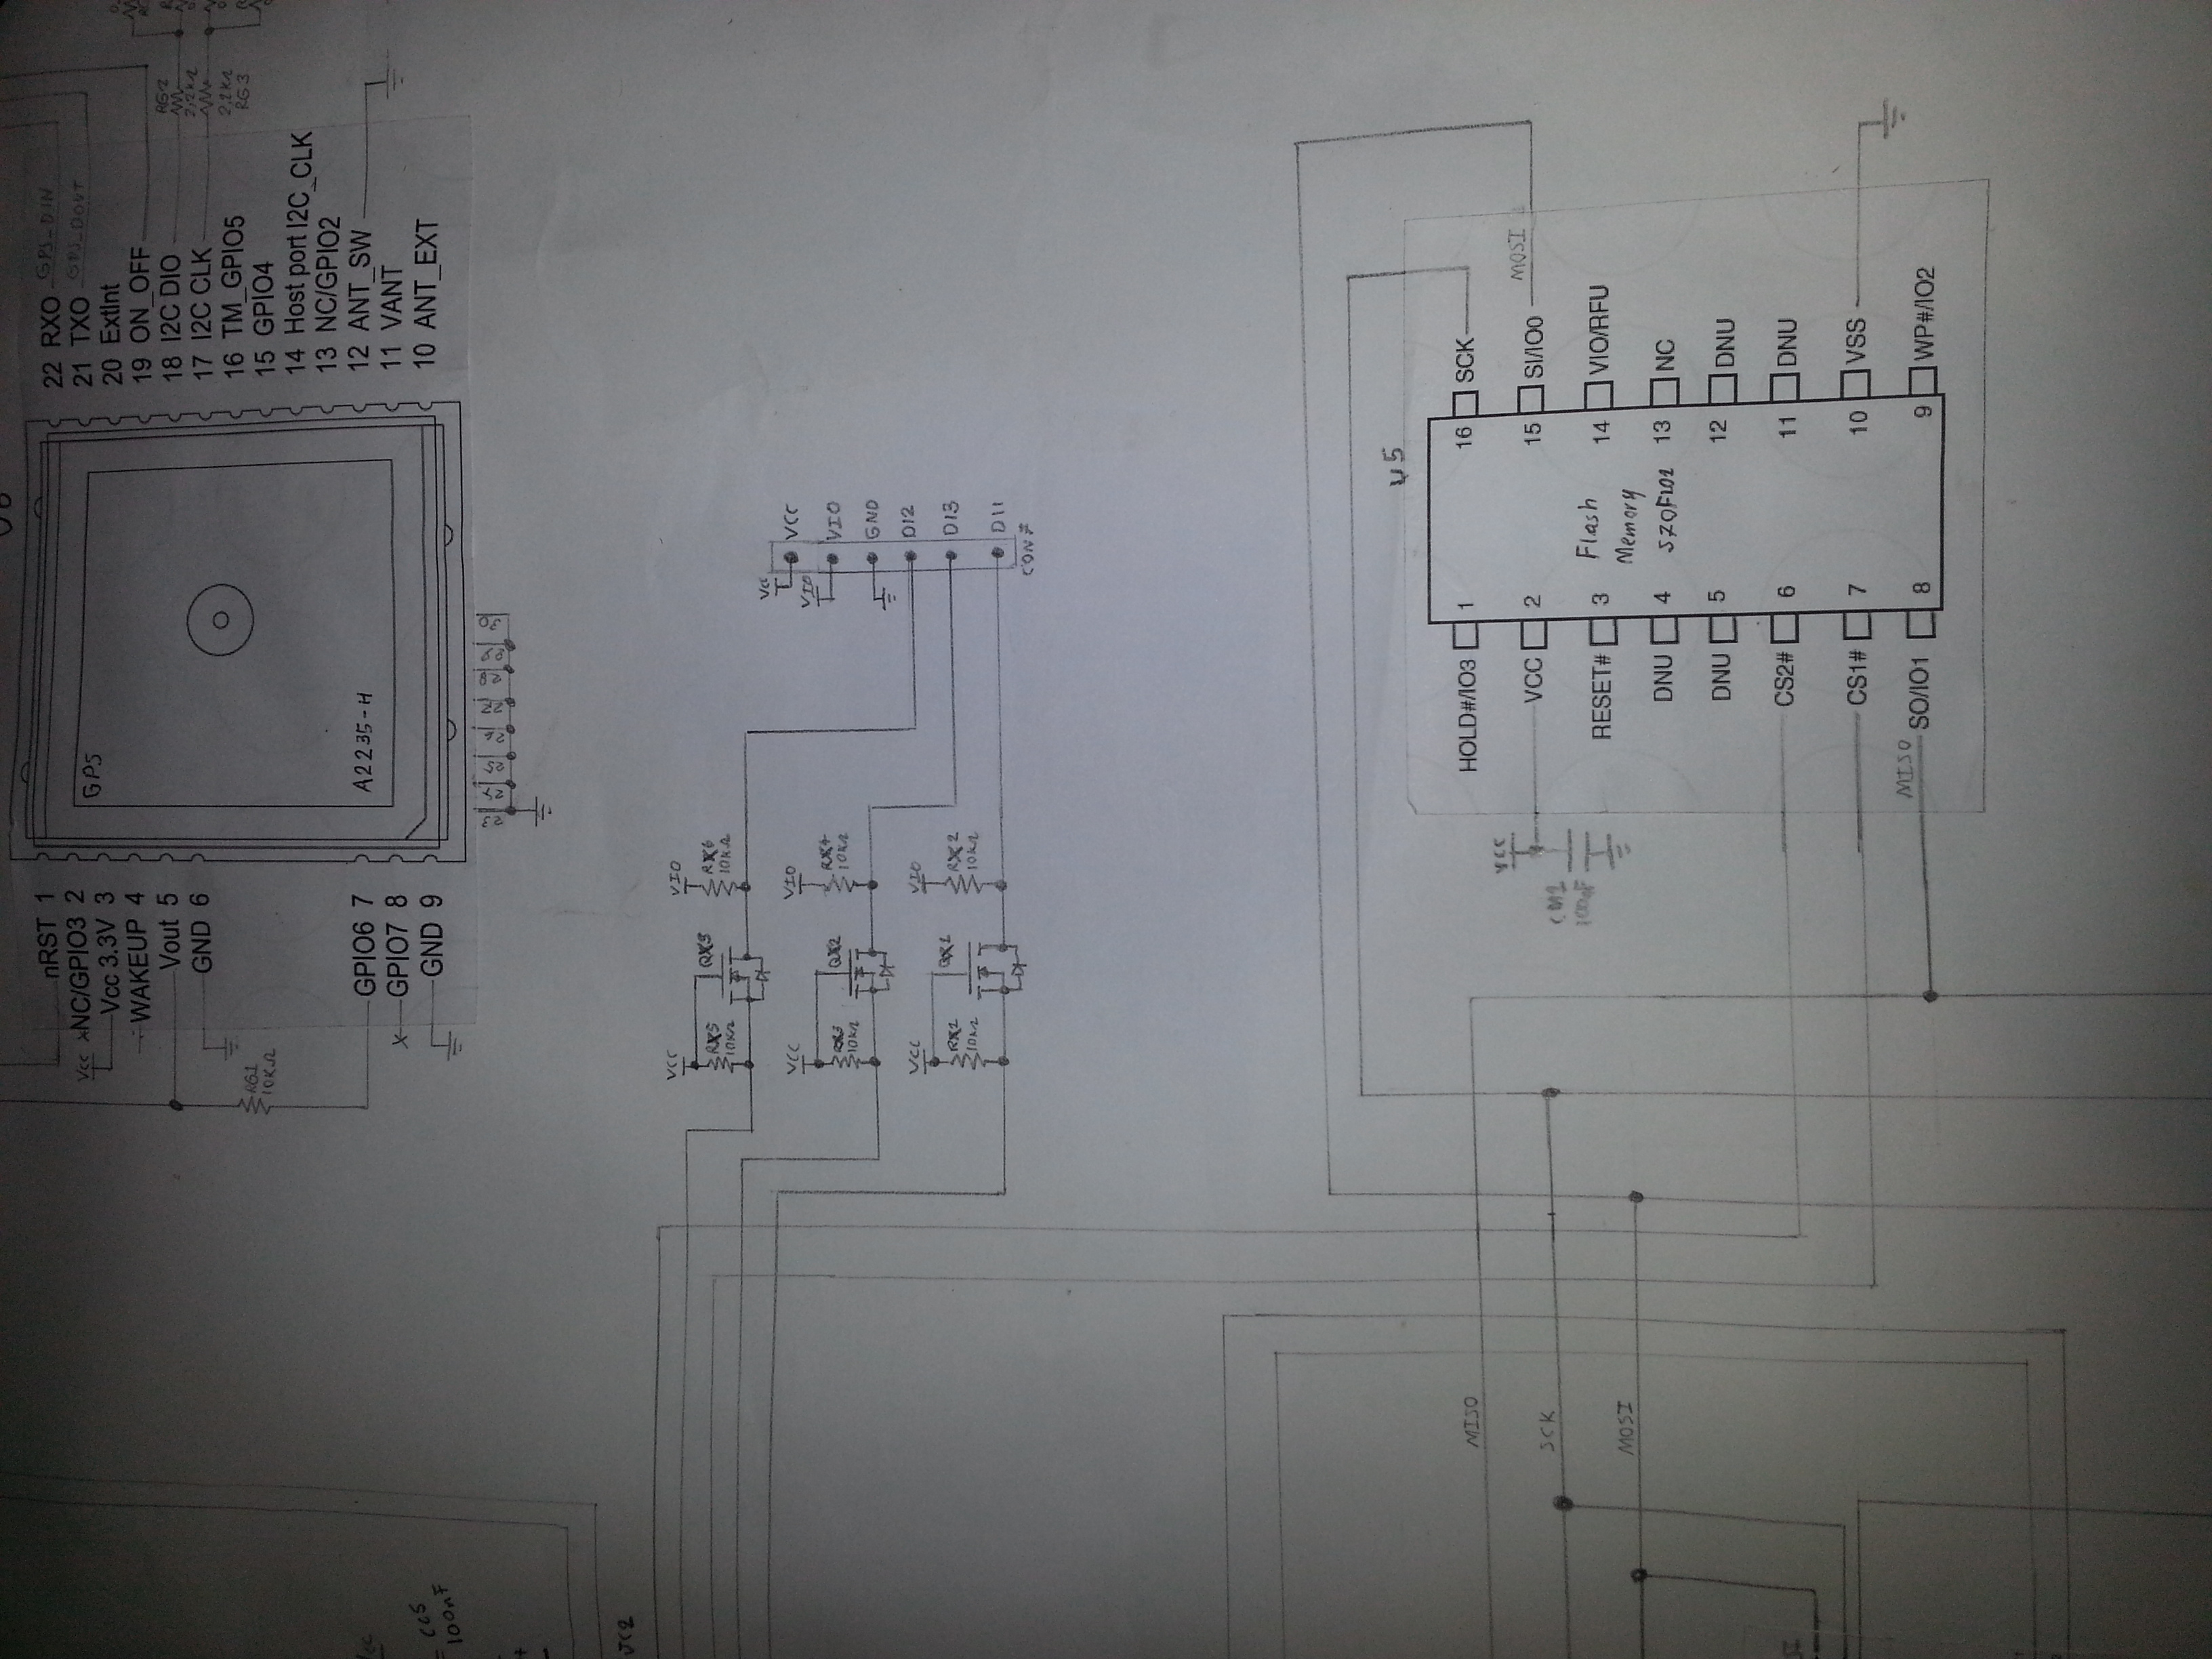 nRST 1
NC/GPIO3 2
Vcc
Vcc 3.3V 3
WAKEUP 4
Vout 5
GND 6
RG1
10KΩ
GPIO6 7
GPIO7 8
GND 9
GPS
A2235-H
22 RXO GPS_DIN
21 TXO GPS_DOUT
20 ExtInt
19 ON_OFF
18 I2C DIO
17 I2C CLK
16 TM_GPIO5
15 GPIO4
14 Host port I2C_CLK
13 NC/GPIO2
12 ANT_SW
11 VANT
10 ANT_EXT
RG2
2,2KΩ
2,2KΩ
RG3
23 24 25 26 27 28 29 30
CC5
100nF
JC2
VCC
RX5
10KΩ
QX3
VIO
RX6
10KΩ
VCC
RX3
10KΩ
QX2
VIO
RX4
10KΩ
VCC
RX1
10KΩ
QX1
VIO
RX2
10KΩ
Vcc
VCC
VIO
VIO
GND
D12
D13
D11
CON7
MISO
SCK
MOSI
U5
HOLD#/IO3 1
VCC 2
RESET# 3
DNU 4
DNU 5
CS2# 6
CS1# 7
MISO
SO/IO1 8
VCC
CM1
100nF
Flash
Memory
S70FL01
16 SCK
15 SI/IO0
MOSI
14 VIO/RFU
13 NC
12 DNU
11 DNU
10 VSS
9 WP#/IO2